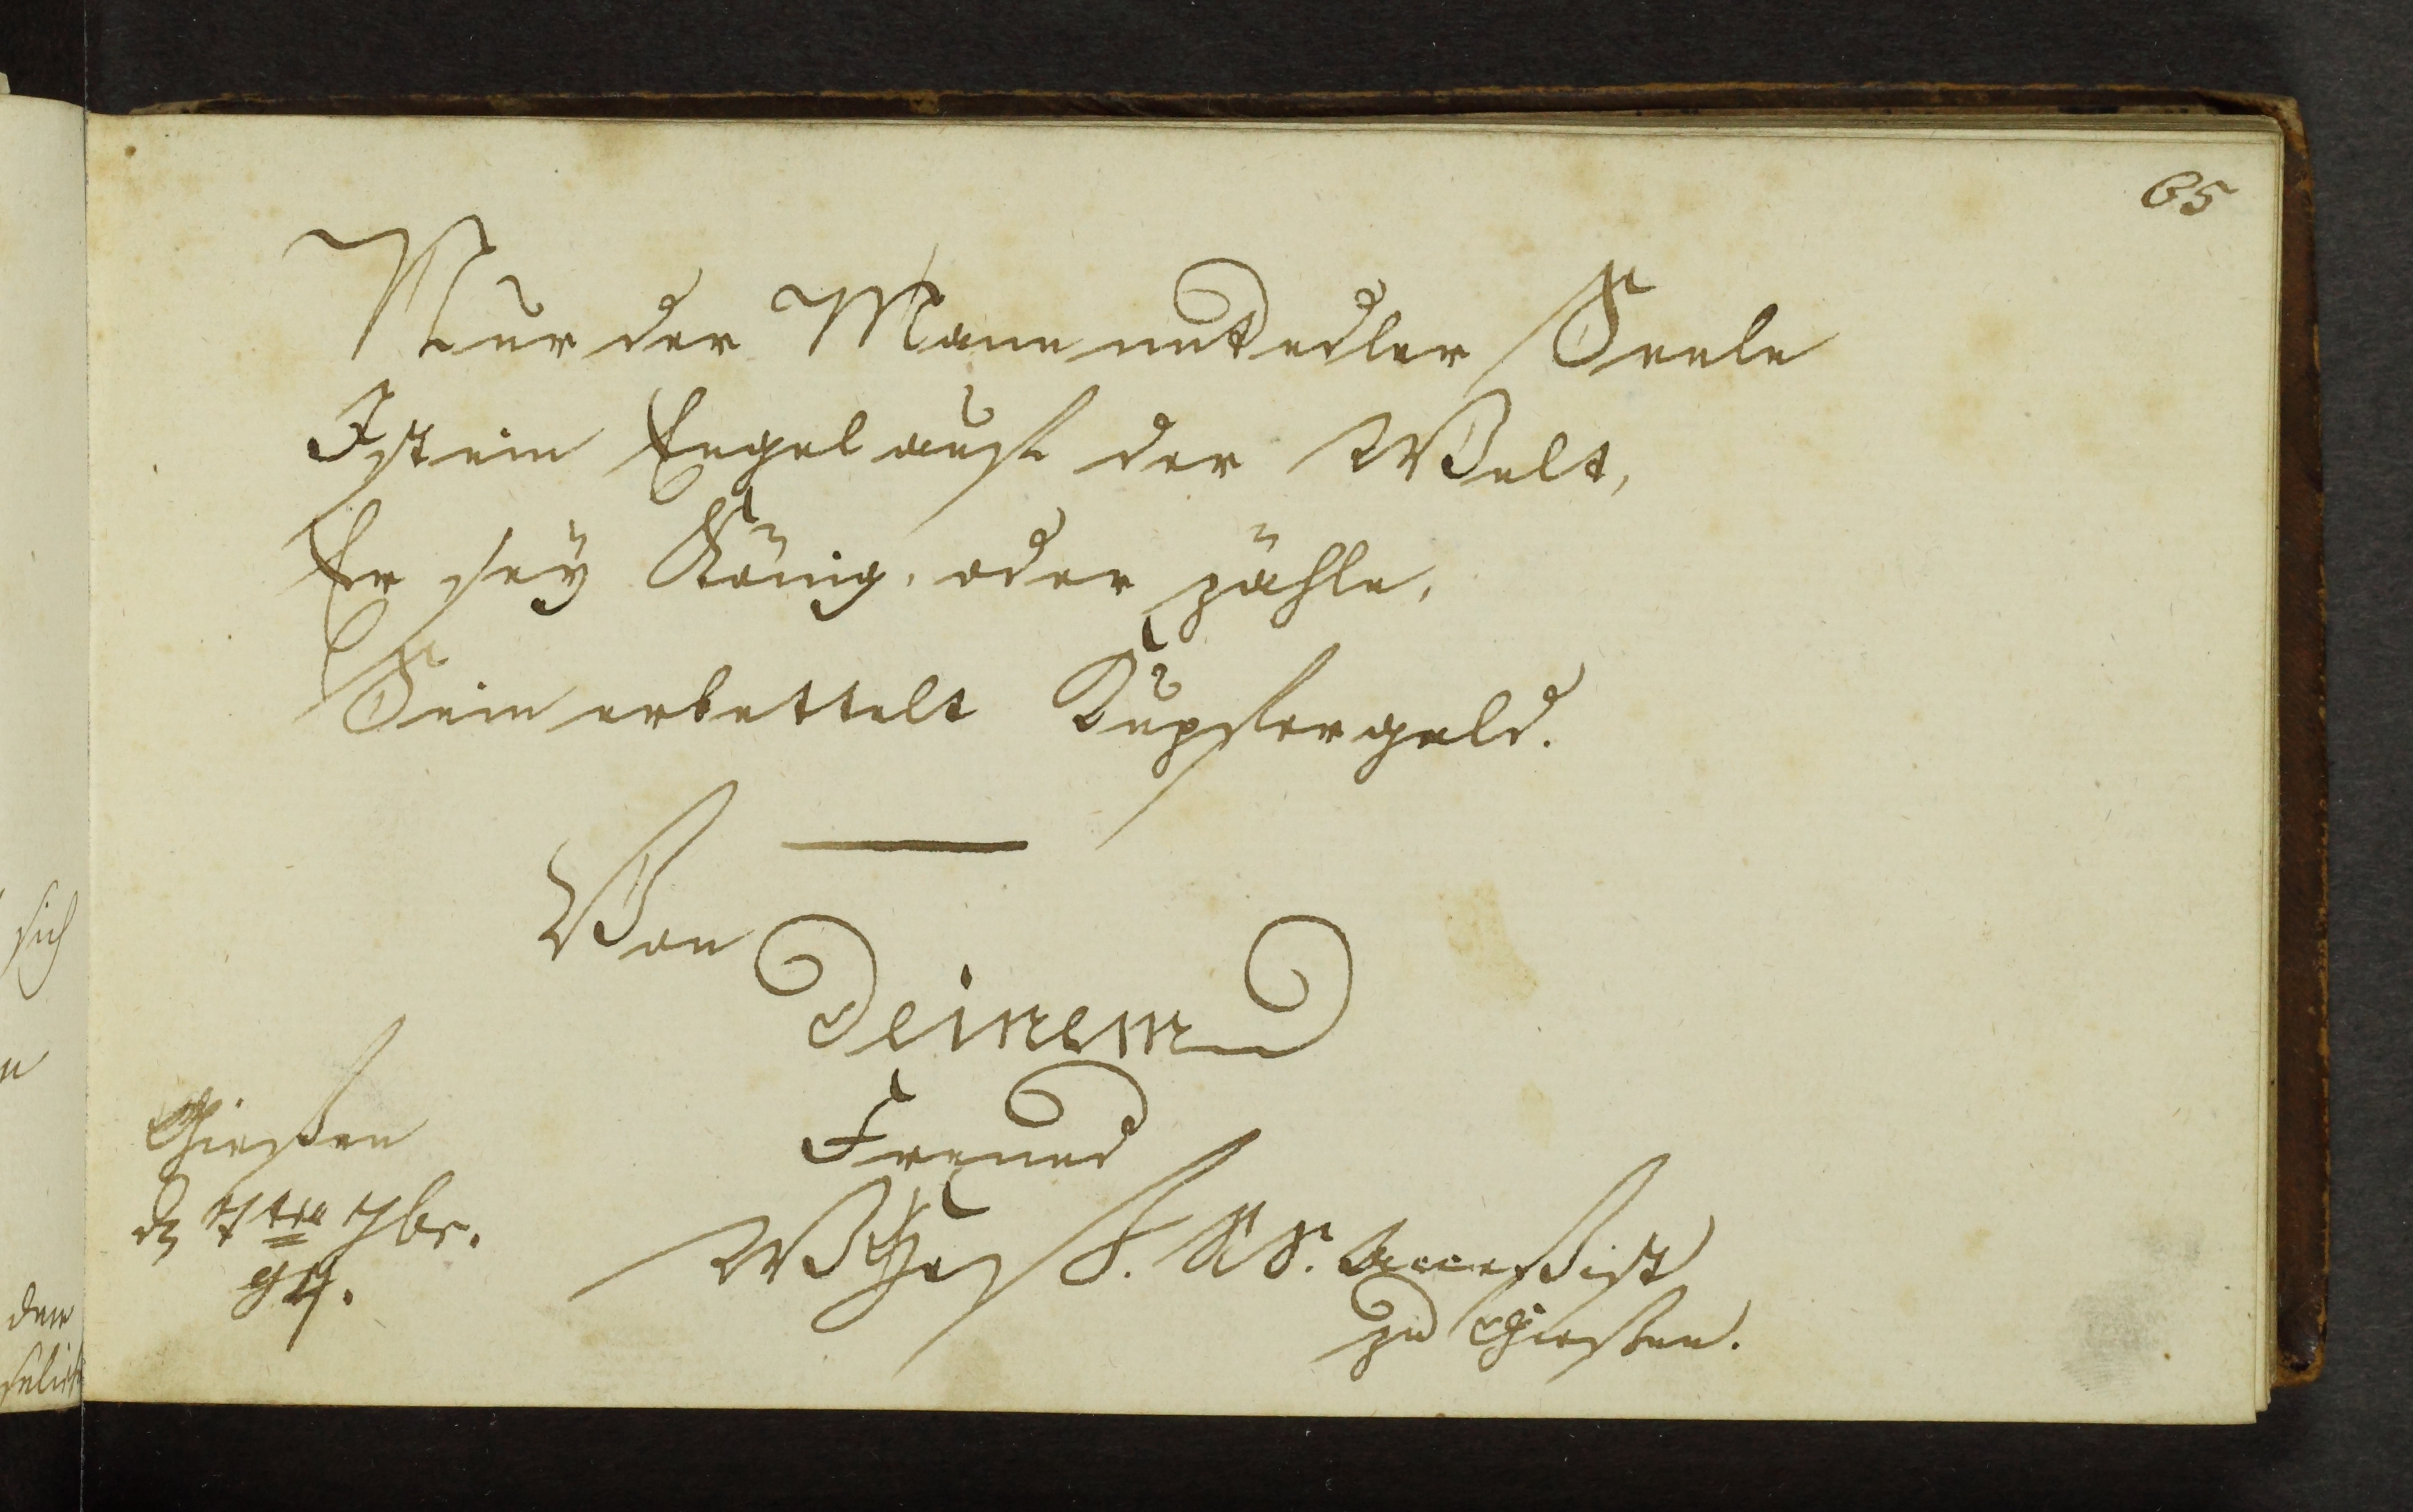 65
Nur der Mann mit edler Seele
Ist ein Engel auf der Welt,
Er seÿ König, oder zähle,
Sein erbettelt Kupfergeld.
Von
Deinem
Freund
F. Accessist
zu Giessen.
Giessen
d 7ten 7br.
97.
sich
den